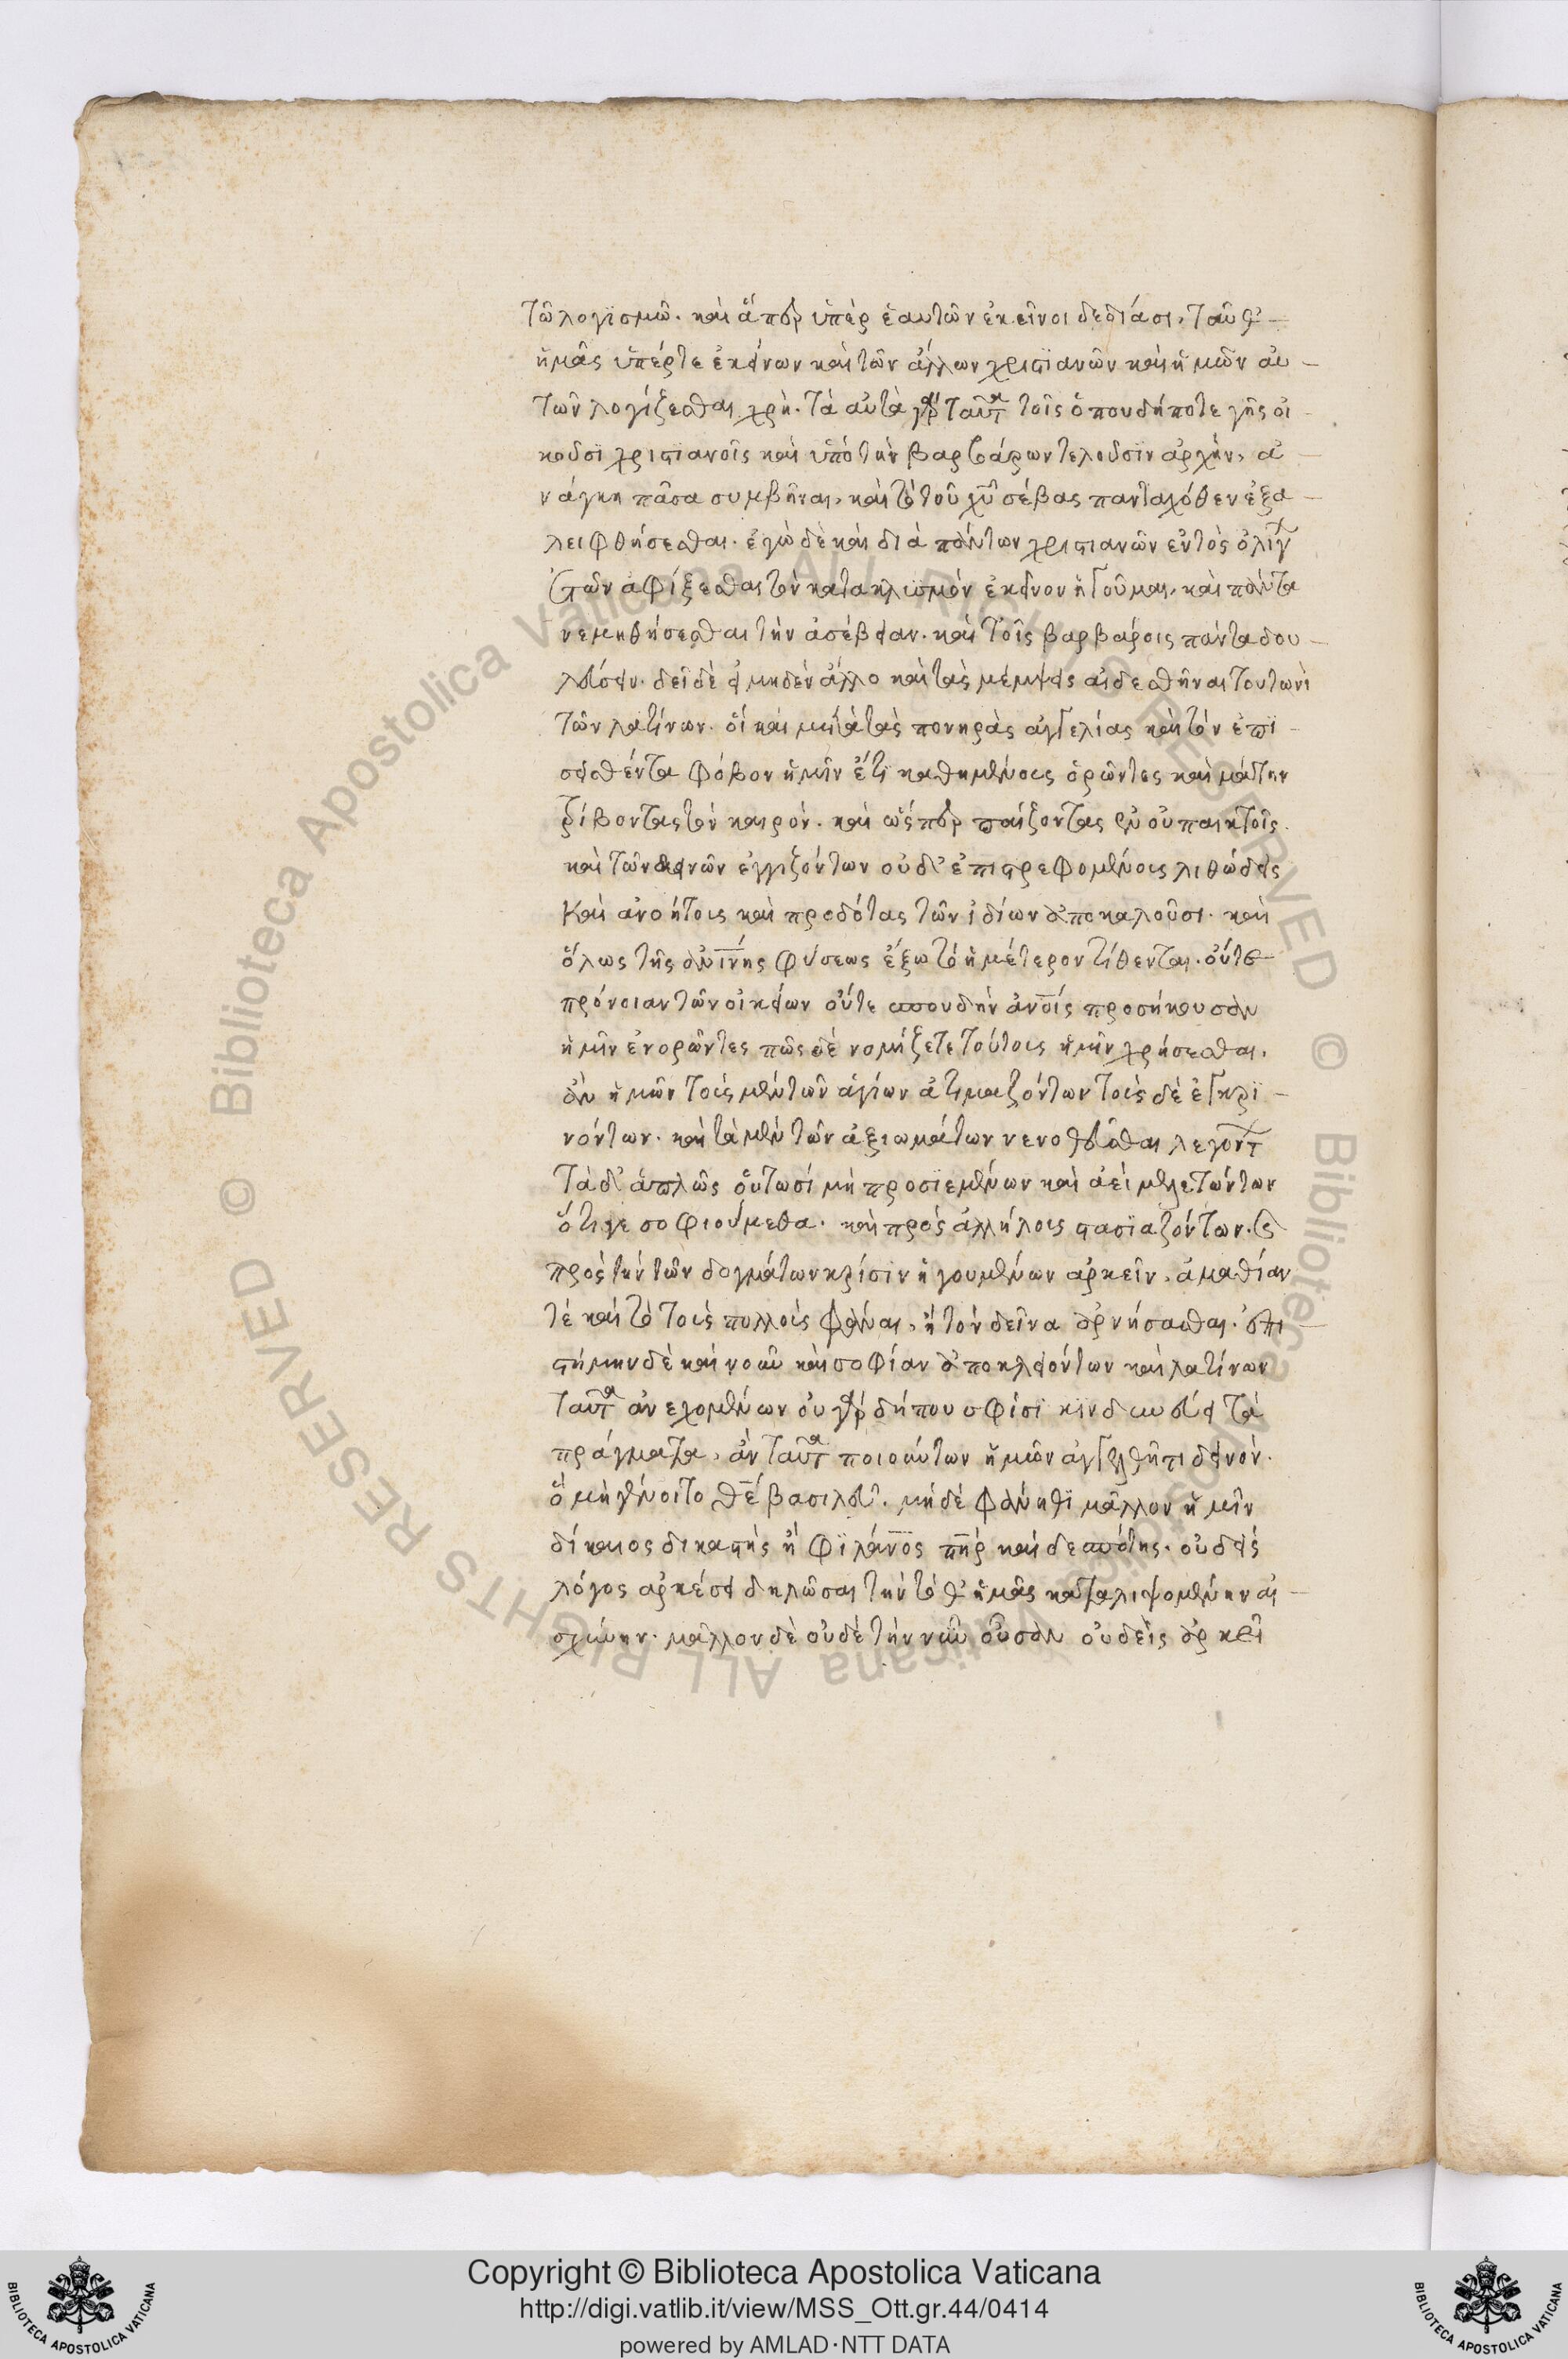 τῶ λογϊσμῶ. καὶ ἅπερ ὑπὲρ ἑαυτῶν ἐκεῖνοι δεδιάσι, ταῦθ'
ἡμᾶς ὑπέρτε ἐκείνων καὶ τῶν ἄλλων χριστϊανῶν καὶ ἡμῶν αὐ
τῶν λογίζεσθαι χρὴ. τὰ αὐτὰ γὰρ ταῦτα τοῖς ὁπουδήποτε γῆς οἰ
κοῦσϊ χριστιανοῖς καὶ ὑπὸ τὴν βαρβάρων τελοῦσϊν ἀρχὴν, ἀ
νάγκη πᾶσα συμβῆναι, καὶ τὸ τοῦ χῦ σέβας πανταχόθεν ἐξα
λειφθήσεσθαι. ἐγὼ δὲ καὶ διὰ πάντων χριστιανῶν ἐντὸς ὀλίγ
ἐτῶν ἀφίξεσθαι τὸν κατακλυσμὸν ἐκεῖνον ἡγοῦμαι, καὶ πάντα
νεμηθήσεσθαι τὴν ἀσέβειαν. καὶ τοῖς βαρβάροις πάντα δου
λεύσειν. δεῖ δὲ εἰ μηδὲν ἄλλο καὶ τὰς μέμψεις αἰδεσθῆναι τουτωνὶ
τῶν λατίνων. οἳ καὶ μετὰ τὰς πονηρὰς ἀγγελίας καὶ τὸν ἐπϊ
σεισθέντα φόβον ἡμῖν ἔτϊ καθημένους ὁρῶντες καὶ μάτην
τρίβοντας τὸν καιρὸν. καὶ ὥσπερ παίζοντας ἐν οὐ παικτοῖς.
καὶ τῶν δεινῶν ἐγγιζόντων οὐδ' ἐπιστρεφομένους λιθώδεις
καὶ ἀνοήτους καὶ προδότας τῶν ἰδίων ἀποκαλοῦσι. καὶ
ὅλως τῆς ἀνϊνης φύσεως ἔξω τὸ ἡμέτερον τίθενται. οὔτε
πρόνοιαν τῶν οἰκείων οὔτε σπουδὴν ἀνοίς προσήκουσαν
ἡμῖν ἐνορῶντες πῶς δὲ νομίζετε τούτους ἡμῖν χρήσεσθαι,
ἂν ἡμῶν τοὺς μὲν τῶν ἁγίων ἀτιμαζόντων τοὺς δὲ ἐγκρϊ
νόντων. καὶ τὰ μὲν τῶν ἀξιωμάτων νενοθεῦσθαι λεγόντ
τὰ δ' ἁπλῶς οὑτωσί μὴ προσϊεμένων καὶ ἀεὶ μελετώντων
ὅτι γε σοφιούμεθα. καὶ πρὸς ἀλλήλους στασϊαζόντων. καὶ
πρὸς τὴν τῶν δογμάτων κρίσϊν ἡγουμένων ἀρκεῖν, ἀμαθίαν
τέ καὶ τὸ τοὺς πολλοὺς φᾶναι, ἢ τὸν δεῖνα ἀρνήσασθαι. ἐπι
στήμην δὲ καὶ νοῦν καὶ σοφίαν ἀποκλειόντων καὶ λατίνων
ταῦτα ἀνεχομένων οὐ γὰρ δήπου σφίσϊ κϊνδυνεύει τὰ
πράγματα, ἂν ταῦτα ποιούντων ἡμῶν ἀγγελθῆ τι δεινὸν.
ὃ μὴ γένοιτο θεέ βασιλεῦ. μηδὲ φάνηθϊ μᾶλλον ἡμῖν
δίκαιος δικαστὴς ἢ φϊλάνος πῆρ καὶ δεσπότης. οὐδεὶς
λόγος ἀρκέσει δηλῶσαι τὴν τόθ' ἡμᾶς καταληψομένην αἰ
σχύνην. μᾶλλον δὲ οὐδὲ τὴν νῦν οὖσαν οὐδεὶς ἀρκεῖ
Copyright © Biblioteca Apostolica Vaticana
http://digi.vatlib.it/view/MSS_Ott.gr.44/0414
powered by AMLAD·NTT DATA